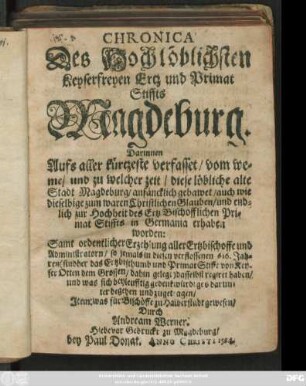 CHRONICA
Des Hochlöblichsten
Keyserfreyen Ertz und Primat
Stiffts
Magdeburg.
Darinnen
Auffs aller kürtzeste verfasset/ vom we-
me/ und zu welcher zeit/ diese löbliche alte
Stadt Magdeburg/ anfäncklich gebawet/ auch wie
dieselbige zum waren Christlichen Glauben/ und end-
lich zur Hochheit des Ertz Bischofflichen Pri-
mat Stiffts in Germania erhaben
worden
Samt ordentlicher Erzehlung aller Ertzbischoffe und
Administratorn/ so jemals in diesen verflossenen 616. Jah-
ren/ sindder das Ertzbischthumb und Primat Stifft von Key-
ser Otten dem Grossen/ dahin gelegt/ dasselbst regiret haben/
und was sich bey leufftig gedenckwirdiges darun-
ter begeben und zugetragen/
Item/ was für Bischöffe zu Halwerstadt gewesen/
Durch
Andream Werner.
Hiebevor Gedruckt zu Magdeburg/
bey Paul Donat. ANNO CHRISTI 1584.